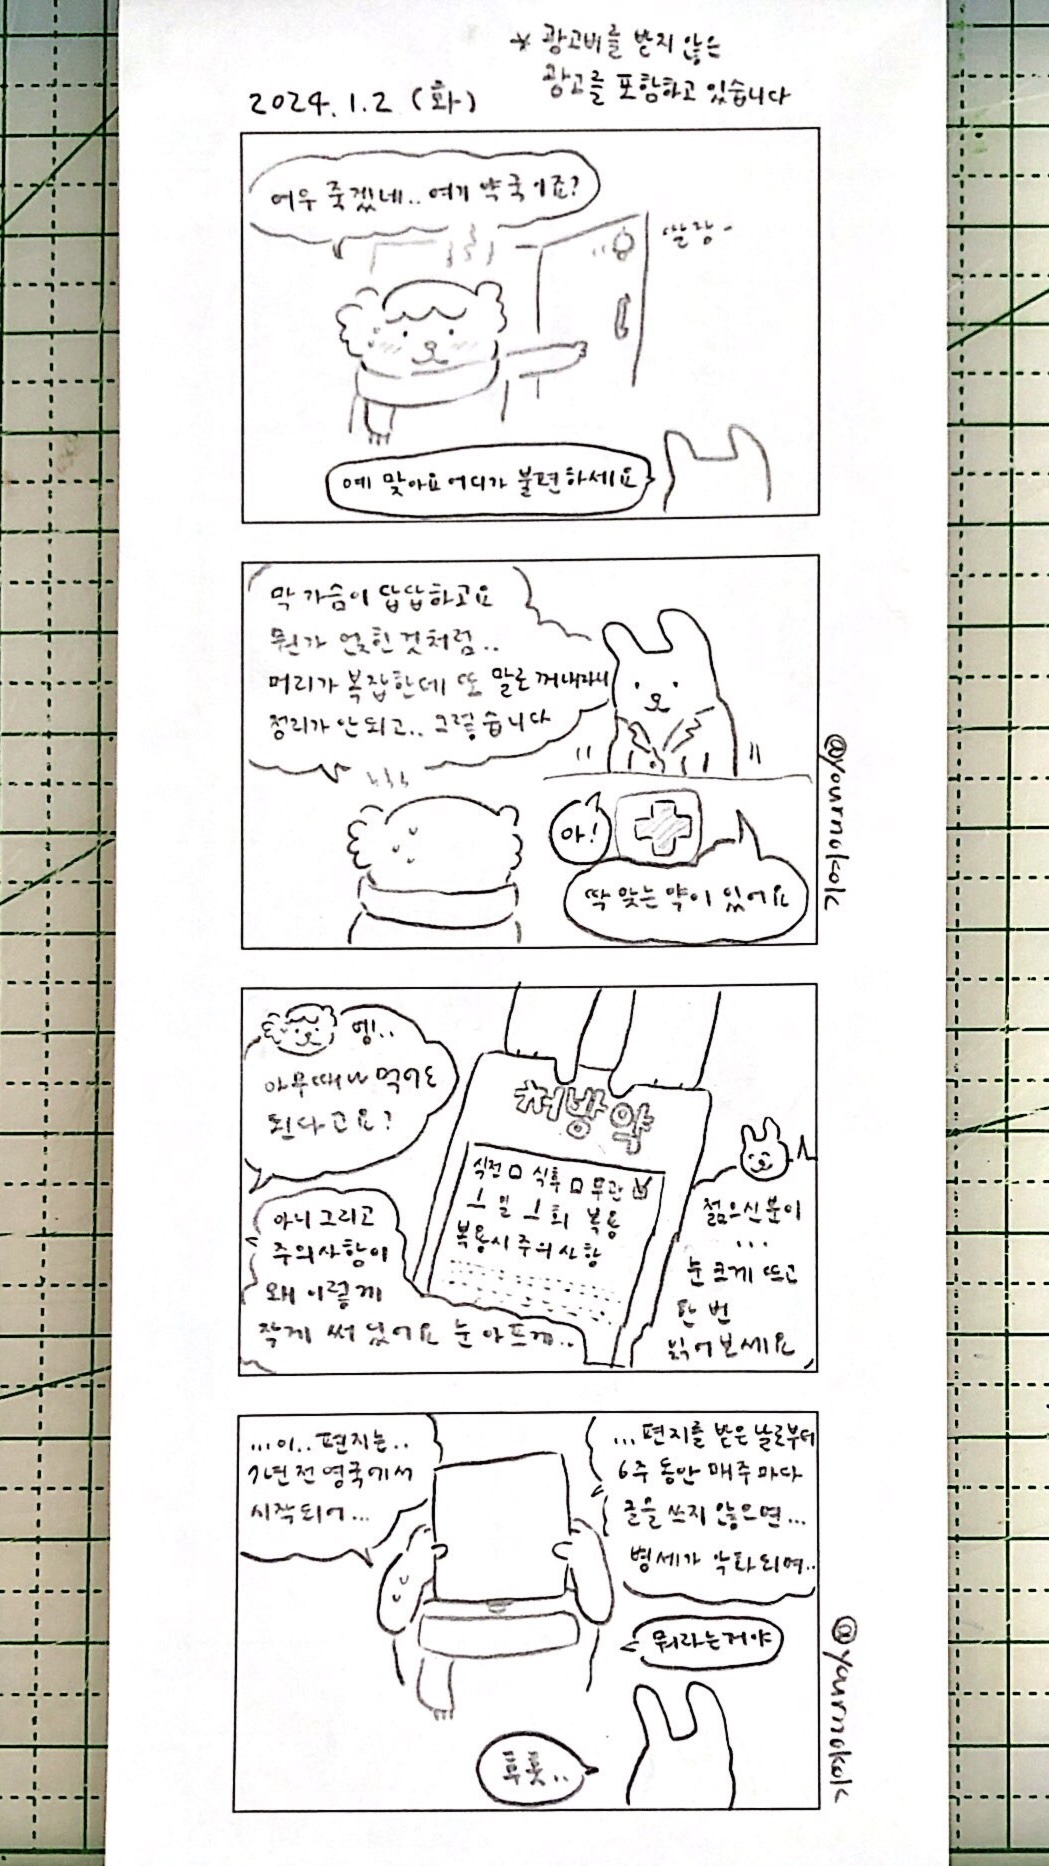 * 광고비를 받지 않은
광고를 포함하고 있습니다
2024.1.2 (화)
어우 죽겠네.. 여기 약국이죠?
딸랑-
예 맞아요 어디가 불편하세요
막 가슴이 답답하고요
뭔가 얹힌것처럼..
머리가 복잡한데 또 말로 꺼내자니
정리가 안되고.. 그렇습니다
아!
딱 맞는 약이 있어요
@yournokok
엥..
아무때나 먹어도
된다고요?
처방약
식전 □ 식후 □ 무관 ☑
1 일 1 회 복용
복용시 주의사항
아니 그리고
주의사항이
왜 이렇게
작게 써 있어요 눈 아프게..
젊으신 분이
...
눈 크게 뜨고
한 번
읽어보세요
...이.. 편지는..
7년 전 영국에서
시작되어...
...편지를 받은 날로부터
6주 동안 매주마다
글을 쓰지 않으면...
병세가 악화되며..
뭐라는거야
후훗..
@yournokok